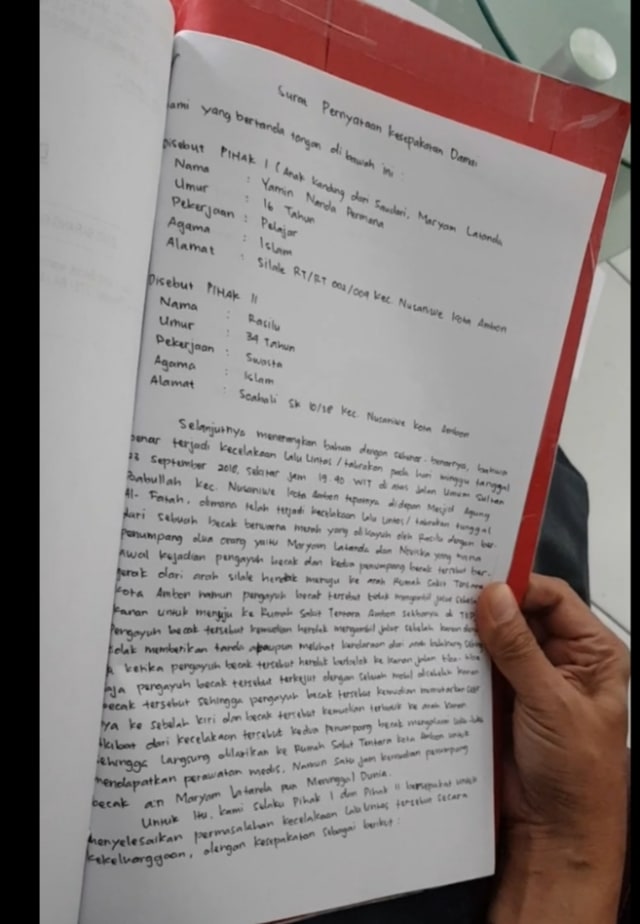 Surat Pernyataan Kesepakatan Damai
ami yang bertanda tangan di bawah ini :
Disebut PIHAK I ( Anak kandung dari Saudari. Maryam Latanda
Nama : Yamin Nanda Permana
Umur : 16 Tahun
Pekerjaan : Pelajar
Agama : Islam
Alamat : Silale RT/RT 002/004 Kec. Nusaniwe Kota Ambon
Disebut PIHAK II
Nama : Rasilu
Umur : 34 Tahun
Pekerjaan : Swasta
Agama : Islam
Alamat : Soabali SK 10/28 Kec. Nusaniwe Kota Ambon
Selanjutnya menerangkan bahwa dengan sebenar-benarnya, bahwa
benar terjadi kecelakaan Lalu Lintas / tabrakan pada hari minggu tanggal
23 September 2018, sekitar jam 19.40 WIT di ruas Jalan Umum Sultan
Baabullah Kec. Nusaniwe Kota Ambon tepatnya didepan Mesjid Agung
Al-Fatah, dimana telah terjadi kecelakaan lalu lintas / tabrakan tunggal
dari sebuah becak berwarna merah yang dikayuh oleh Rasilu dengan ber-
penumpang dua orang yaitu Maryam Latanda dan Novita yang mana
awal kejadian pengayuh becak dan kedua penumpang becak tersebut ber-
gerak dari arah silale hendak menuju ke arah Rumah Sakit Tentara
Kota Ambon namun pengayuh becak tersebut tidak mengambil jalur sebelah
kanan untuk menuju ke Rumah Sakit Tentara Ambon sekitarnya di TKP
Pengayuh becak tersebut kemudian hendak mengambil jalur sebelah kanan
tidak memberikan tanda ataupun melihat kendaraan dari arah belakang
ketika pengayuh becak tersebut hendak berbelok ke kanan jalan tiba-tiba
aja pengayuh becak tersebut terkejut dengan sebuah mobil disebelah kanan
becak tersebut sehingga pengayuh becak tersebut kemudian memutarkan
ya ke sebelah kiri dan becak tersebut kemudian terbalik ke arah kanan
akibat dari kecelakaan tersebut kedua penumpang becak mengalami luka-luka
ehingga langsung dilarikan ke Rumah Sakit Tentara Kota Ambon untuk
mendapatkan perawatan medis. Namun satu jam kemudian penumpang
becak an Maryam Latanda pun Meninggal Dunia.
Untuk itu, kami selaku Pihak I dan Pihak II bersepakat untuk
menyelesaikan permasalahan kecelakaan Lalu Lintas tersebut secara
kekeluarggaan, dengan kesepakatan sebagai berikut :